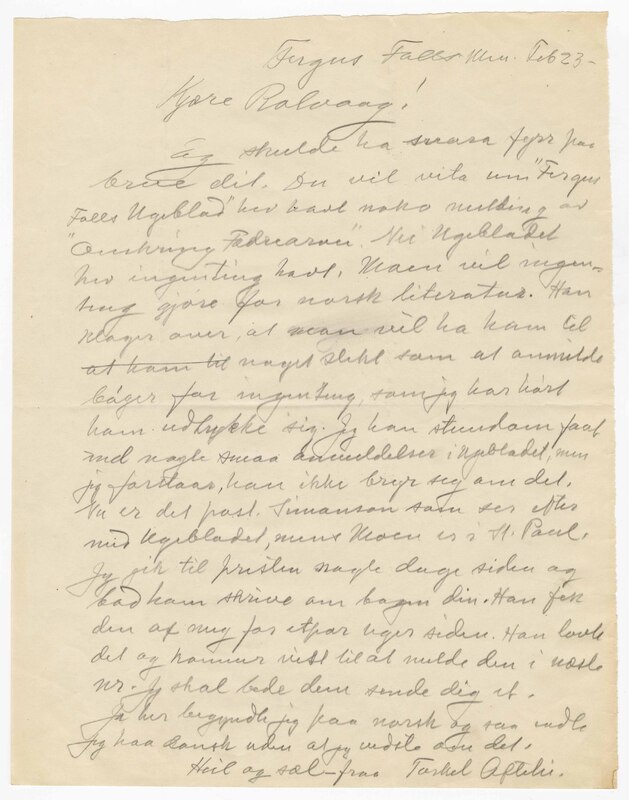 Fergus Falls Min. Feb 23-
Kjære Rolvaag!
Eg skulde ha svara fyrr paa
breve dit. Du vil vita um "Fergus
Falls Ugeblad" hev havt noko melding av
"Omkring Fædrearven". Nei Ugebladet
hev ingenting havt. Moen vil ingen-
ting gjøre for norsk literatur. Han
klager over, at man vil ha ham til
at ham til noget slikt som at anmelde
bøger for ingenting, som jeg har hørt
ham udtrykke sig. Jeg kan stundom faat
ind nogle smaa anmeldelser i Ugebladet, men
jeg forstaar, han ikke bryr seg om det.
Nu er det past. Simonson som ser efter
med Ugebladet, mens Moen er i St. Paul.
Jeg gik til presten nogle dage siden og
bad ham skrive om bogen din. Han fek
den af mig for etpar uger siden. Han lovte
det og kommer vist til at melde den i næste
nr. Jeg skal bede dem sende dig et.
Ja her begyndte jeg paa norsk og saa endte
jeg paa dansk uden at jeg vidste om det.
Heil og sæl - fraa Torkel Oftelie.